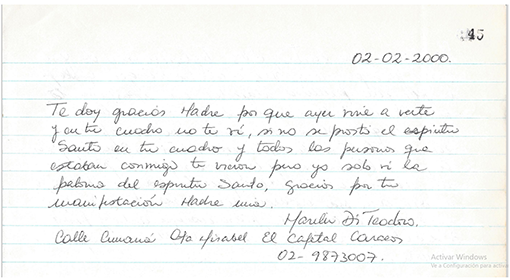 45
02-02-2000.
Te doy gracias Madre por que ayer vine a verte
y en tu cuadro no te vi, si no se postó el espiritu
Santo en tu cuadro y todas las personas que
estaban conmigo te vieron pero yo solo vi la
paloma del espiritu Santo, gracias por tu
manifestación Madre mia.
Di Teodoro.
Calle Cumaná Qta Misabel El Cafetal Caracas
02-9873007.
Activar Windows
Ve a Configuración para activar